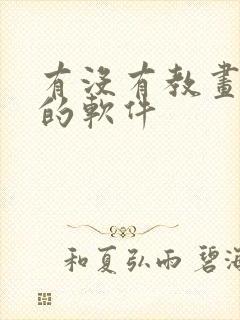 有没有教畫
的軟件
和夏弘雨 碧海